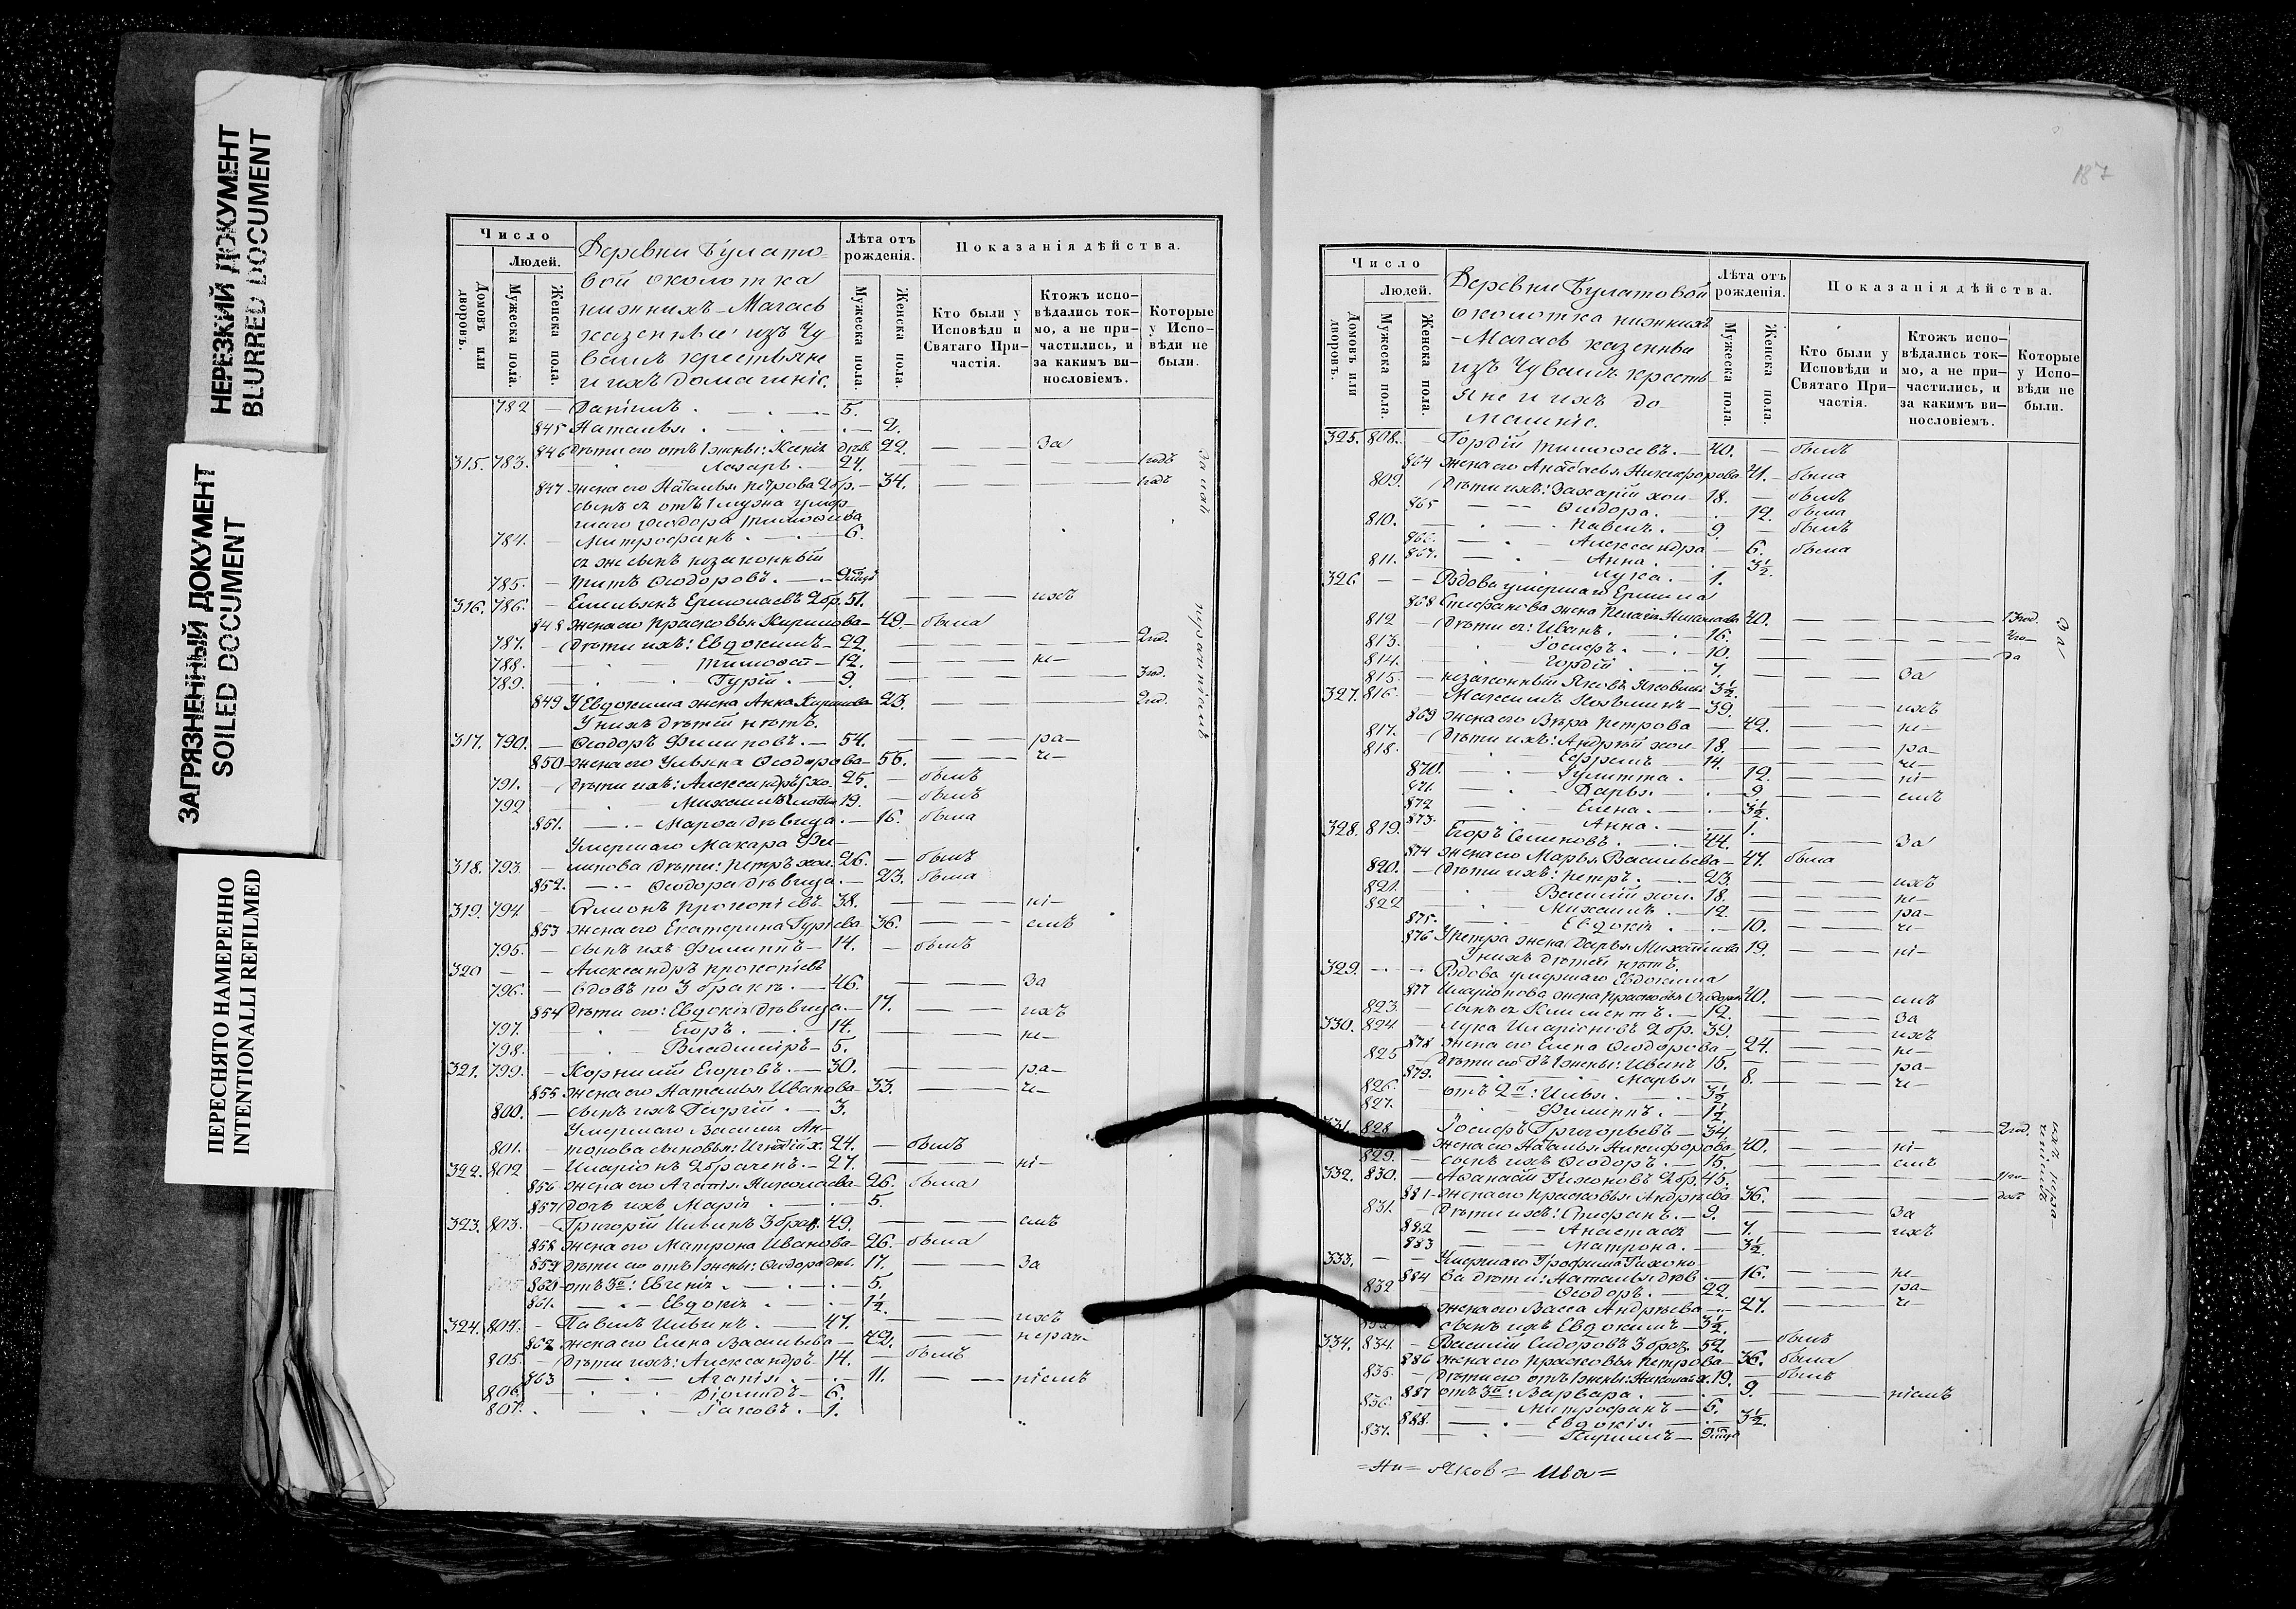 НЕРЕЗКИЙ ДОКУМЕНТ
BLURRED DOCUMENT
ЗАГРЯЗНЕННЫЙ ДОКУМЕНТ
SOILED DOCUMENT
ПЕРЕСНЯТО НАМЕРЕННО
INTENTIONALLI REFILMED
Число
Людей.
Домовъ или дворовъ.
Мужеска пола.
Женска пола.
Деревни Булато-
вой околотка
нижнихъ-Магась
казенные изъ Чу-
вашъ крестьяне
и ихъ домашніе.
Лѣта отъ рожденія.
Мужеска пола.
Женска пола.
Показанія дѣйства.
Кто были у Исповѣди и Святаго При-частія.
Ктожъ испо-вѣдались ток-мо, а не при-частились, и за какимъ ви-нословіемъ.
Которые у Испо-вѣди не были.
782 — Даніилъ . — 5.
845 Наталья . — 2.
846 дѣти его отъ 1 жены: Ксенія дѣв. 22. — За
315. 783. Лазарь. 24. — 1 годъ
847 жена его Наталья Петрова 2 бр. — 34. — 1 годъ
сынъ ея отъ 1 мужа умер-
шаго Ѳеодора Тимоѳеева
784. — Митрофанъ . — 6.
ея же сынъ незаконный
785. — Титъ Ѳеодоровъ. —
316. 786. — Емельянъ Ермолаевъ 2 бр. 51. — ихъ
848 жена его Прасковья Кирилова — 49. — была
787. — дѣти ихъ: Евдокимъ — 22. — 2 год.
788. — Тимоѳей — 12. — не—
789. — Гурій . — 9. — 3 год.
849 У Евдокима жена Анна Кирилова 23. — 2 год.
У нихъ дѣтей нѣтъ.
317. 790. — Ѳеодоръ Филиповъ. — 54. — ра—
850 жена его Ульяна Ѳеодорова — 56. — че—
791. — дѣти ихъ: Александръ хо. 25. — былъ
792 — Михаилъ 19. — былъ
851. — Марѳа дѣвица. — 16. была
Умершаго Макара Фи-
318. 793. — липова дѣти: Петръ хол. 26. — былъ
852. — Ѳеодора дѣвица. — 23. была
319. 794 — Филонъ Прокопіевъ — 38. — ні—
853 жена его Екатерина Гуріева 36. — емъ
795. — сынъ ихъ Филиппъ — 14. — былъ
320 — — Александръ Прокопіевъ
796. — вдовъ по 3 бракѣ. — 46. — За
854 дѣти его: Евдокія дѣвица. — 17. — ихъ
797. Егоръ. — 14. — не—
798. Владиміръ — 5.
321. 799. — Корнилій Егоровъ. — 30. — ра—
855 жена его Наталья Иванова 33. — че—
800. — сынъ ихъ Георгій . — 3.
Умершаго Василья Ан-
801. — тонова сыновья: Игнатій х. 24. — былъ
322. 802 — Иларіонъ 2 браченъ. — 27. — ні—
856 жена его Агапія Николаева — 26. была
857 дочь ихъ Марія . — 5.
323. 803. — Григорій Ильинъ 3 брач. 49. — емъ
858 жена его Матрона Иванова — 26. — была
859 дѣти его отъ 1 жены: Ѳеодора дѣв. 17. — За
860 отъ 3й: Евгенія . — 5.
861. — Евдокія . — 1½.
324. 804. — Павелъ Ильинъ . — 47. — ихъ
862 жена его Елена Васильева — 42. — нерач—
805. — дѣти ихъ: Александръ — 14. — былъ
863 — Агапія. — 11. — ніемъ
806. Діомидъ — 6.
807. Іаковъ. — 1.
За ихъ
нераченіемъ
187
Число
Людей.
Домовъ или дворовъ.
Мужеска пола.
Женска пола.
Деревни Булатовой
околотка нижнихъ
-Магась казенные
изъ Чувашъ кресть-
яне и ихъ до-
машніе.
Лѣта отъ рожденія.
Мужеска пола.
Женска пола.
Показанія дѣйства.
Кто были у Исповѣди и Святаго При-частія.
Ктожъ испо-вѣдались ток-мо, а не при-частились, и за какимъ ви-нословіемъ.
Которые у Испо-вѣди не были.
325. 808. — Гордій Тимоѳеевъ. — 40. — былъ
864 жена его Никифорова 41. — была
809. дѣти ихъ: Захарій хол — 18. — былъ
865 — Ѳеодора. — 12. была
810. — Павелъ. — 9. — былъ
866. — Александра — 6. была
867. — Анна. — 3½.
811. — Лука. — 1.
326 — — Вдова умершаго Ермила
868 Стефанова жена Пелагія Николаева 40. — 1 год.
812 — дѣти ея: Иванъ. — 16. — 2 го—
813. Іосифъ. — 10. — да
814. Гордій — 7.
815. — незаконный Яковъ Яковлевъ 3½. — За
327. 816. — Максимъ Козьминъ — 39. — ихъ
869 жена его Вѣра Петрова — 42. — не—
817. — дѣти ихъ: Андрей хол. 18. — ра—
818. Ефремъ — 14. — че—
870. — Гулитта. — 12. — ні—
871. — Дарья. — 9. — емъ
872 — Елена. — 3½.
873. — Анна. — 1.
328. 819. Егоръ Семеновъ. — 44. — За
874 жена его Марья Васильева — 47. была
820. — дѣти ихъ: Петръ. — 23. — ихъ
821. Василій хол. 18. — не—
822 Михаилъ. — 12. — ра—
875. — Евдокія . — 10. — че—
876 У Петра жена Дарья Михайлова 19. — ні—
У нихъ дѣтей нѣтъ.
329. — — Вдова умершаго Евдокима
877 Иларіонова жена Прасковья 40. — емъ
823. — сынъ ея Климентъ. — 12. — За
330. 824. — Лука Иларіоновъ 2 бр. 39. — ихъ
878 жена его Елена Ѳеодорова — 24. — не—
825 — дѣти его отъ 1 жены: Иванъ 15. — ра—
879. — Марья — 8. — че—
826. отъ 2й: Илья. — 3½
827. Филиппъ. — 1½
331. 828 Іосифъ Григорьевъ — 34. — 2 год.
жена его Наталья Никифорова 40. — ні—
829. — сынъ ихъ Ѳеодоръ. — 15. — емъ
332. 830. — Аѳанасій Тихоновъ 2 бр. 45.
881 жена его Прасковья Андреева 36.
831. — дѣти ихъ: Стефанъ. — 9. — За
882 Анастасія — 7. — ихъ
883 Матрона. — 3½.
333. — — Умершаго Трофима Тихоно-
884 ва дѣти: Наталья дѣв. — 16. — не—
832 Ѳеодоръ. — 22. — ра—
жена его Васса Андреева — 27. — че—
сынъ ихъ Евдокимъ — 3½.
334. 834. — Василій Сидоровъ 3 брач. 52. — былъ
886 жена его Прасковья Петрова — 36. была
835. — дѣти его отъ 1 жены: Николай х. 19. — былъ
887 отъ 3й: Варвара. — 9. — ніемъ
836. Митрофанъ — 5.
888. — Евдокія. — 3½.
837. Кирилъ —
За
ихъ нера
ченіемъ
= Яков = Ива=